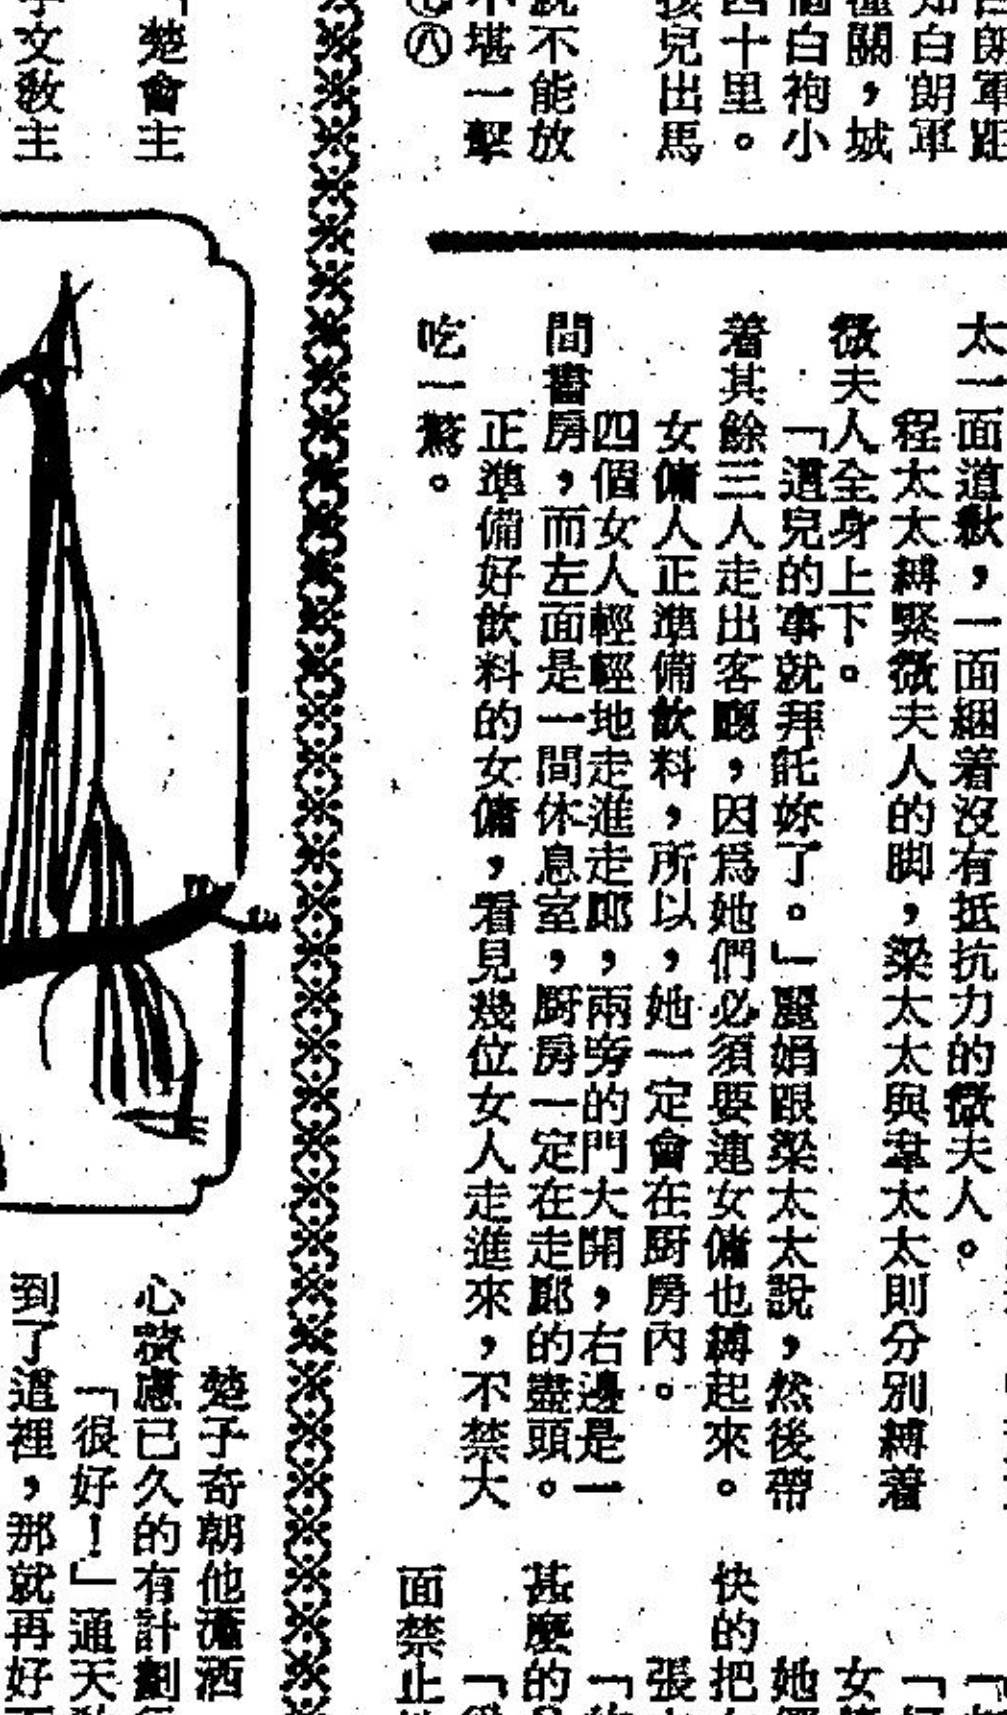 白朗軍距
知白朗軍
潼關，城
個白袍小
四十里。
孩兒出馬
就不能放
不堪一擊
㊆㊇
太一面道歉，一面綑着沒有抵抗力的薇夫人。
程太太縛緊薇夫人的脚，梁太太與韋太太則分別縛着
薇夫人全身上下。
「這兒的事就拜託妳了。」麗娟跟梁太太說，然後帶
着其餘三人走出客廳，因爲她們必須要連女傭也縛起來。
女傭人正準備飲料，所以，她一定會在厨房內。
四個女人輕輕地走進走廊，兩旁的門大開，右邊是一
間書房，而左面是一間休息室，厨房一定在走廊的盡頭。
正準備好飲料的女傭，看見幾位女人走進來，不禁大
吃一驚。
女
她
快的把
張
甚麼的
面禁止
「楚會主
文敎主
楚子奇朝他瀟洒
心儀慮已久的有計劃
「很好！」通天
到了這裡，那就再好